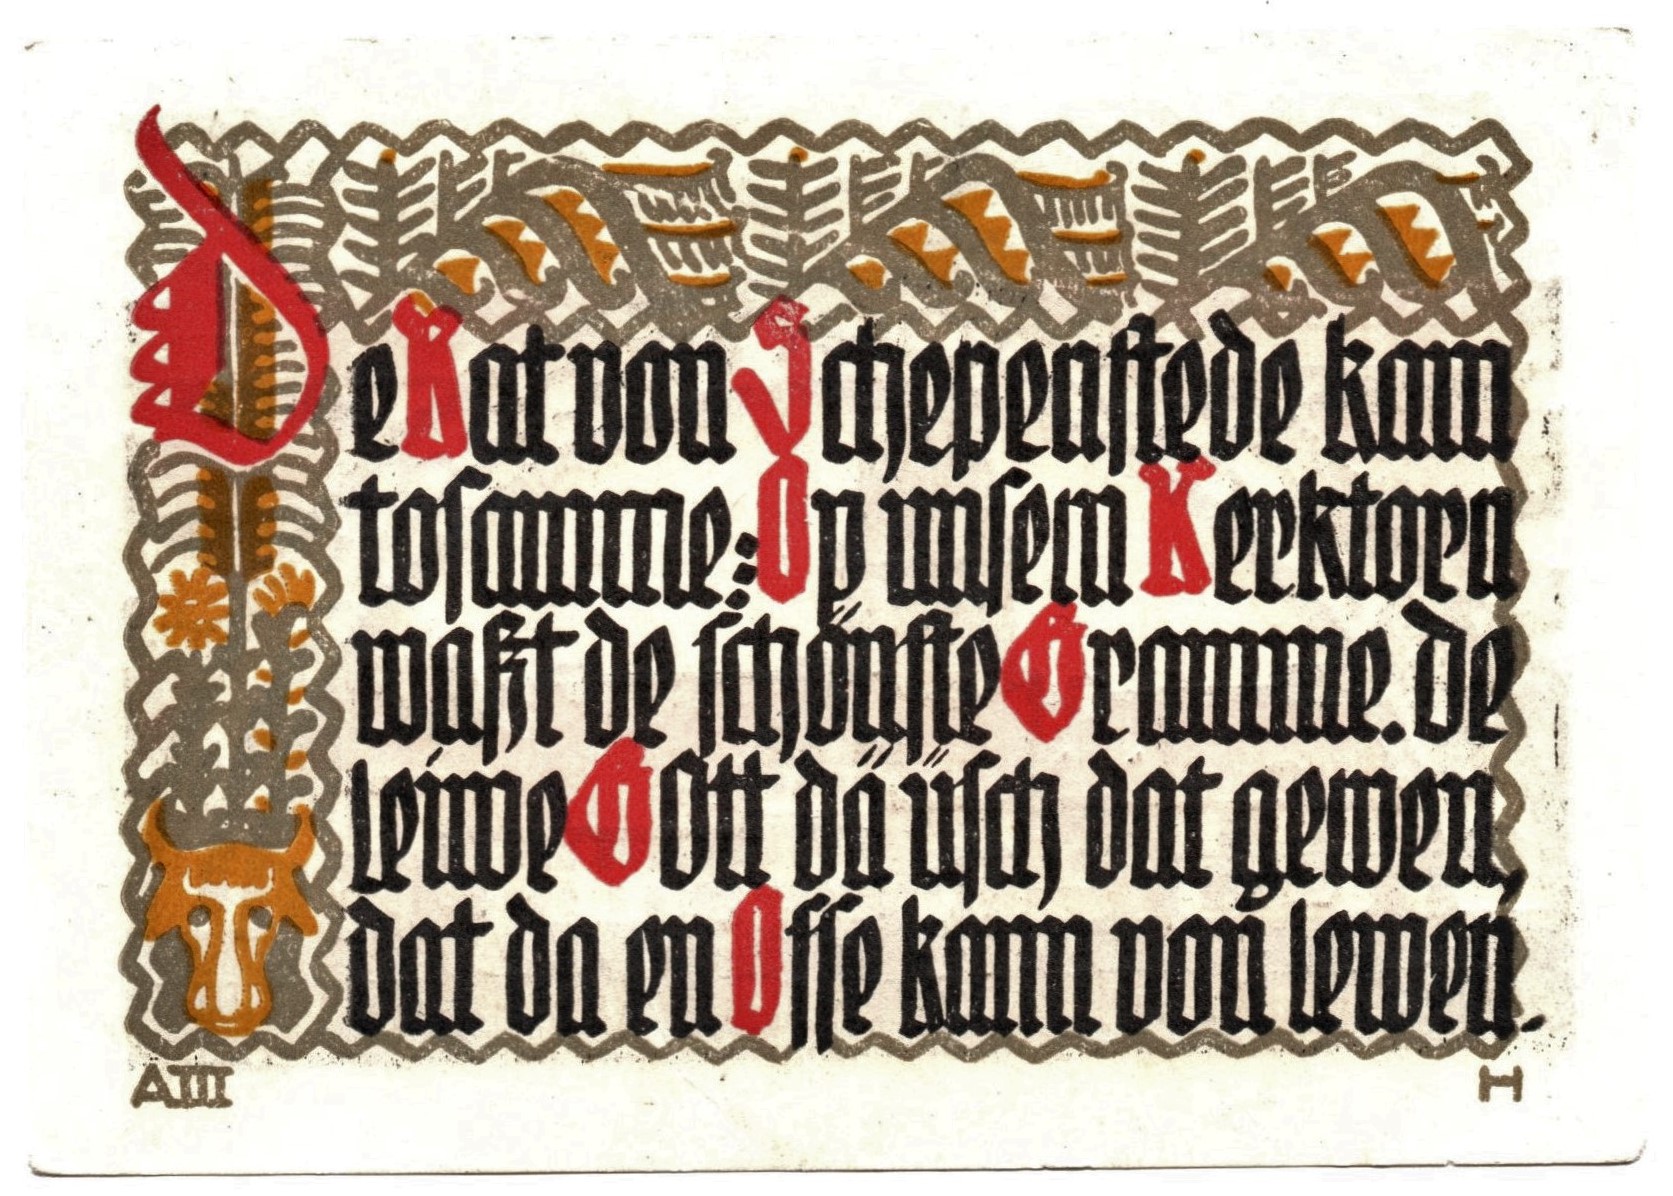 De Rat von Schepenstede kam
tosamme: Op unsern Kerktorn
waßt de schönste Gramme. de
leiwe Gott dä üsch dat gewen,
dat da en Osse kann von lewen.
AIII H